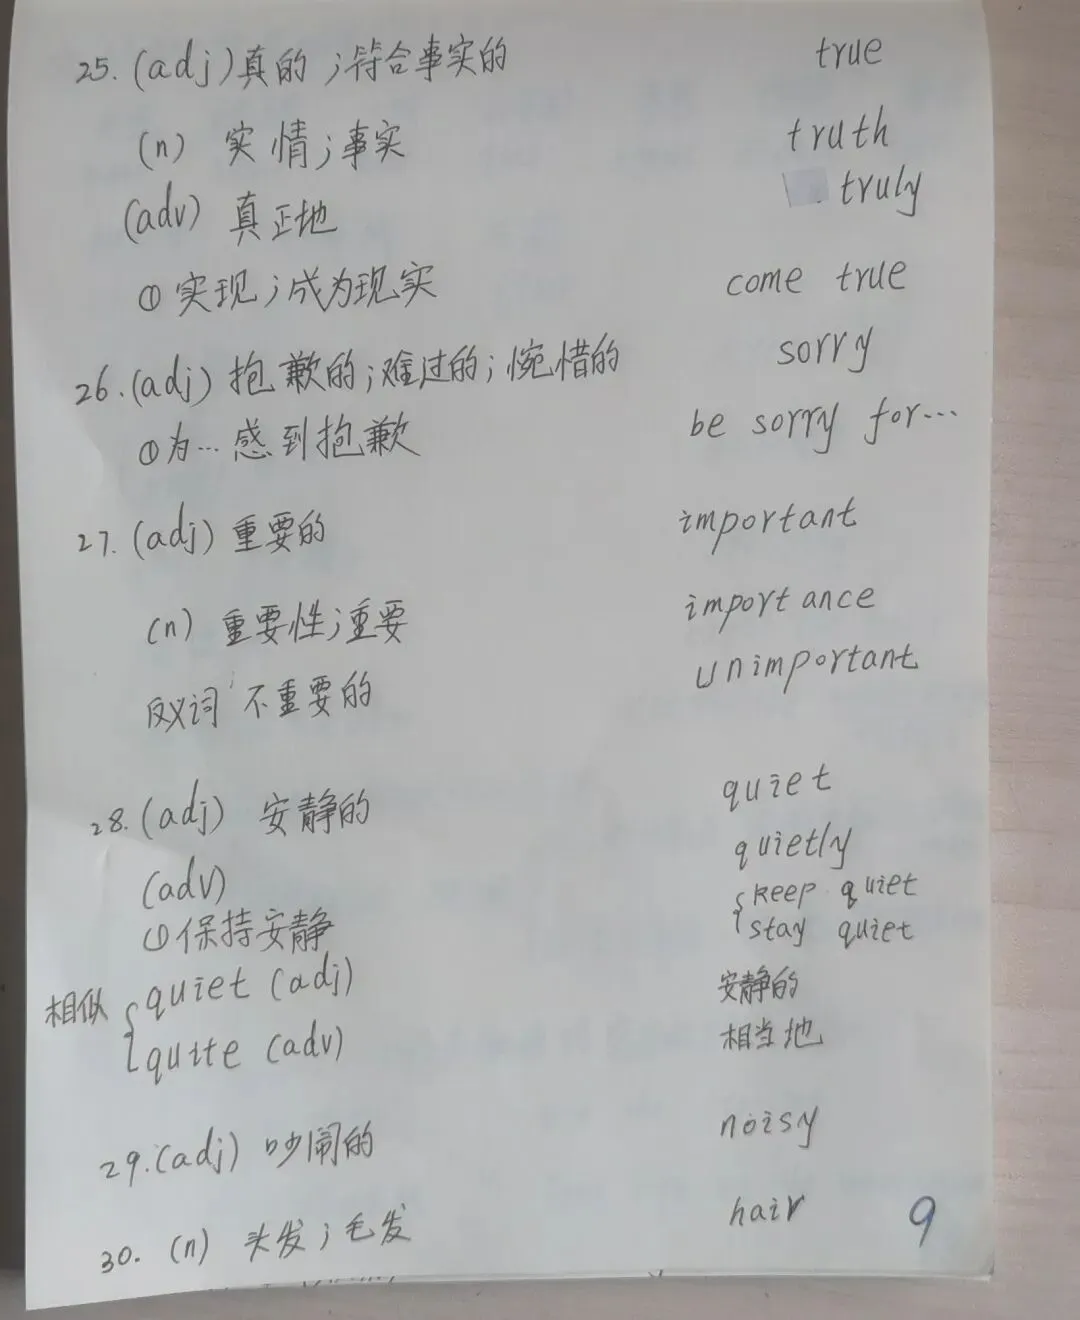 25. (adj)真的；符合事实的 true
(n) 实情；事实 truth
(adv) 真正地 truly
① 实现；成为现实 come true
26.(adj) 抱歉的；难过的；惋惜的 sorry
①为…感到抱歉 be sorry for…
27.(adj) 重要的 important
(n) 重要性；重要 importance
反义词 不重要的 unimportant
28.(adj) 安静的 quiet
(adv) quietly
①保持安静 keep quiet
stay quiet
相似 quiet (adj) 安静的
quite (adv) 相当地
29.(adj) 吵闹的 noisy
30. (n) 头发；毛发 hair
9